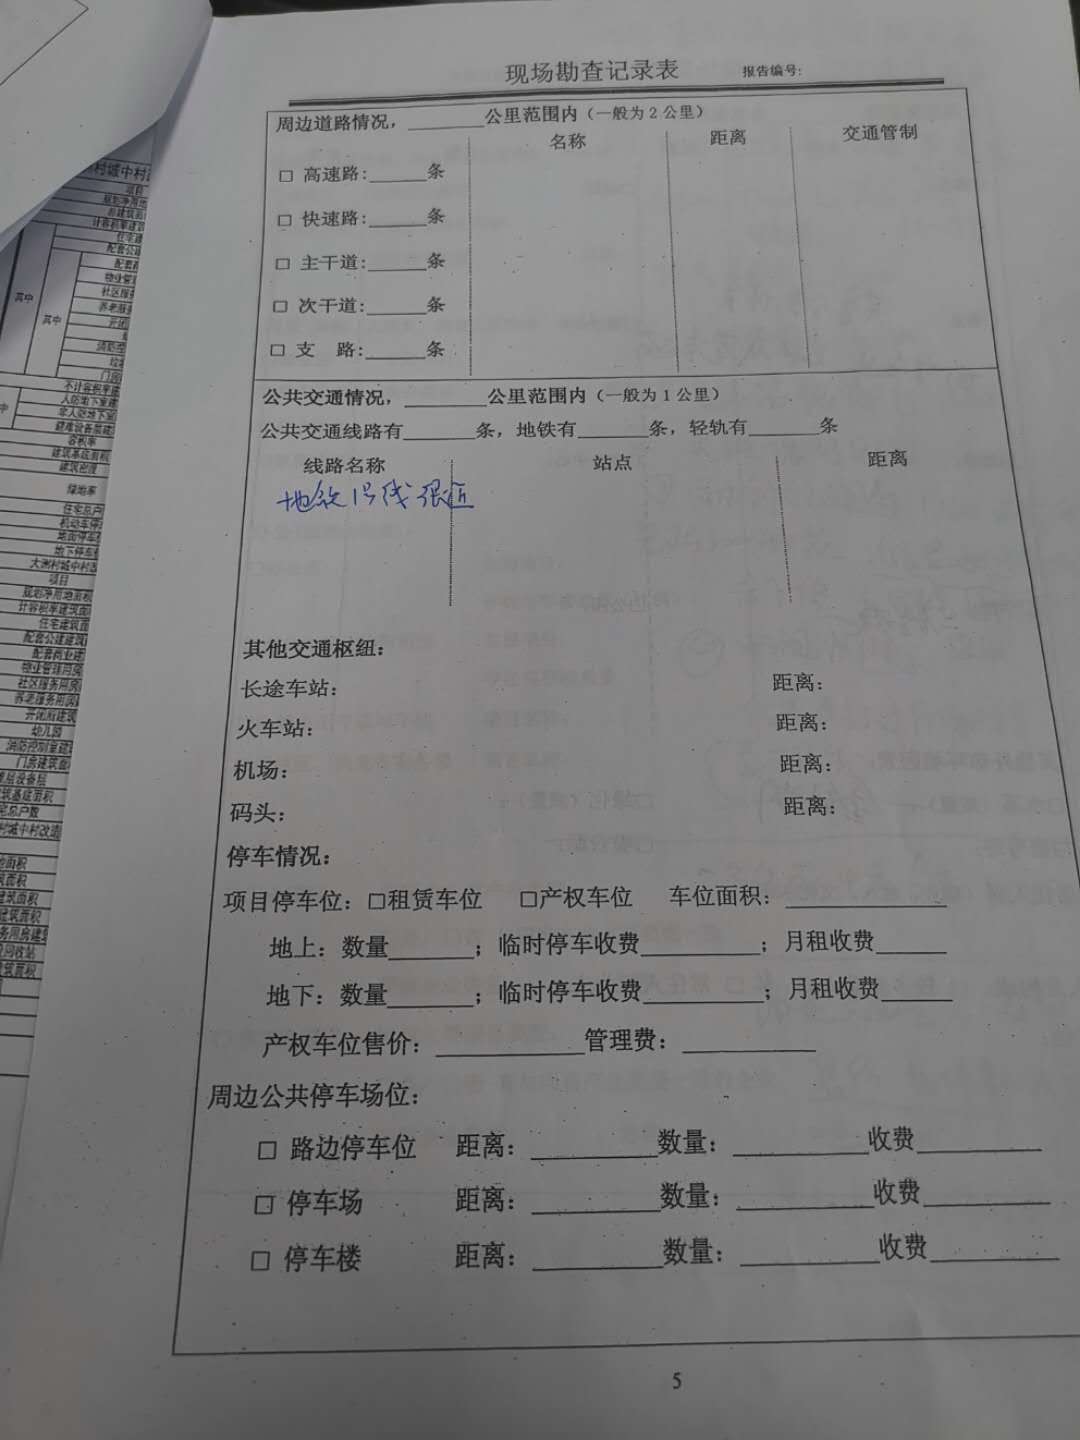 现场勘查记录表 报告编号:
周边道路情况，________公里范围内（一般为2公里）
名称 距离 交通管制
□ 高速路:______条
□ 快速路:______条
□ 主干道:______条
□ 次干道:______条
□ 支 路:______条
公共交通情况，________公里范围内（一般为1公里）
公共交通线路有_______条，地铁有_______条，轻轨有_______条
线路名称 站点 距离
地铁1号线 很近
其他交通枢纽：
长途车站： 距离：
火车站： 距离：
机场： 距离：
码头： 距离：
停车情况：
项目停车位：□租赁车位 □产权车位 车位面积：______________
地上：数量_______；临时停车收费__________；月租收费______
地下：数量_______；临时停车收费__________；月租收费______
产权车位售价：____________管理费：___________
周边公共停车场位：
□ 路边停车位 距离：__________数量：___________收费__________
□ 停车场 距离：__________数量：___________收费__________
□ 停车楼 距离：__________数量：___________收费__________
5
其中
其中
容积率
建筑密度
绿地率
项目
幼儿园